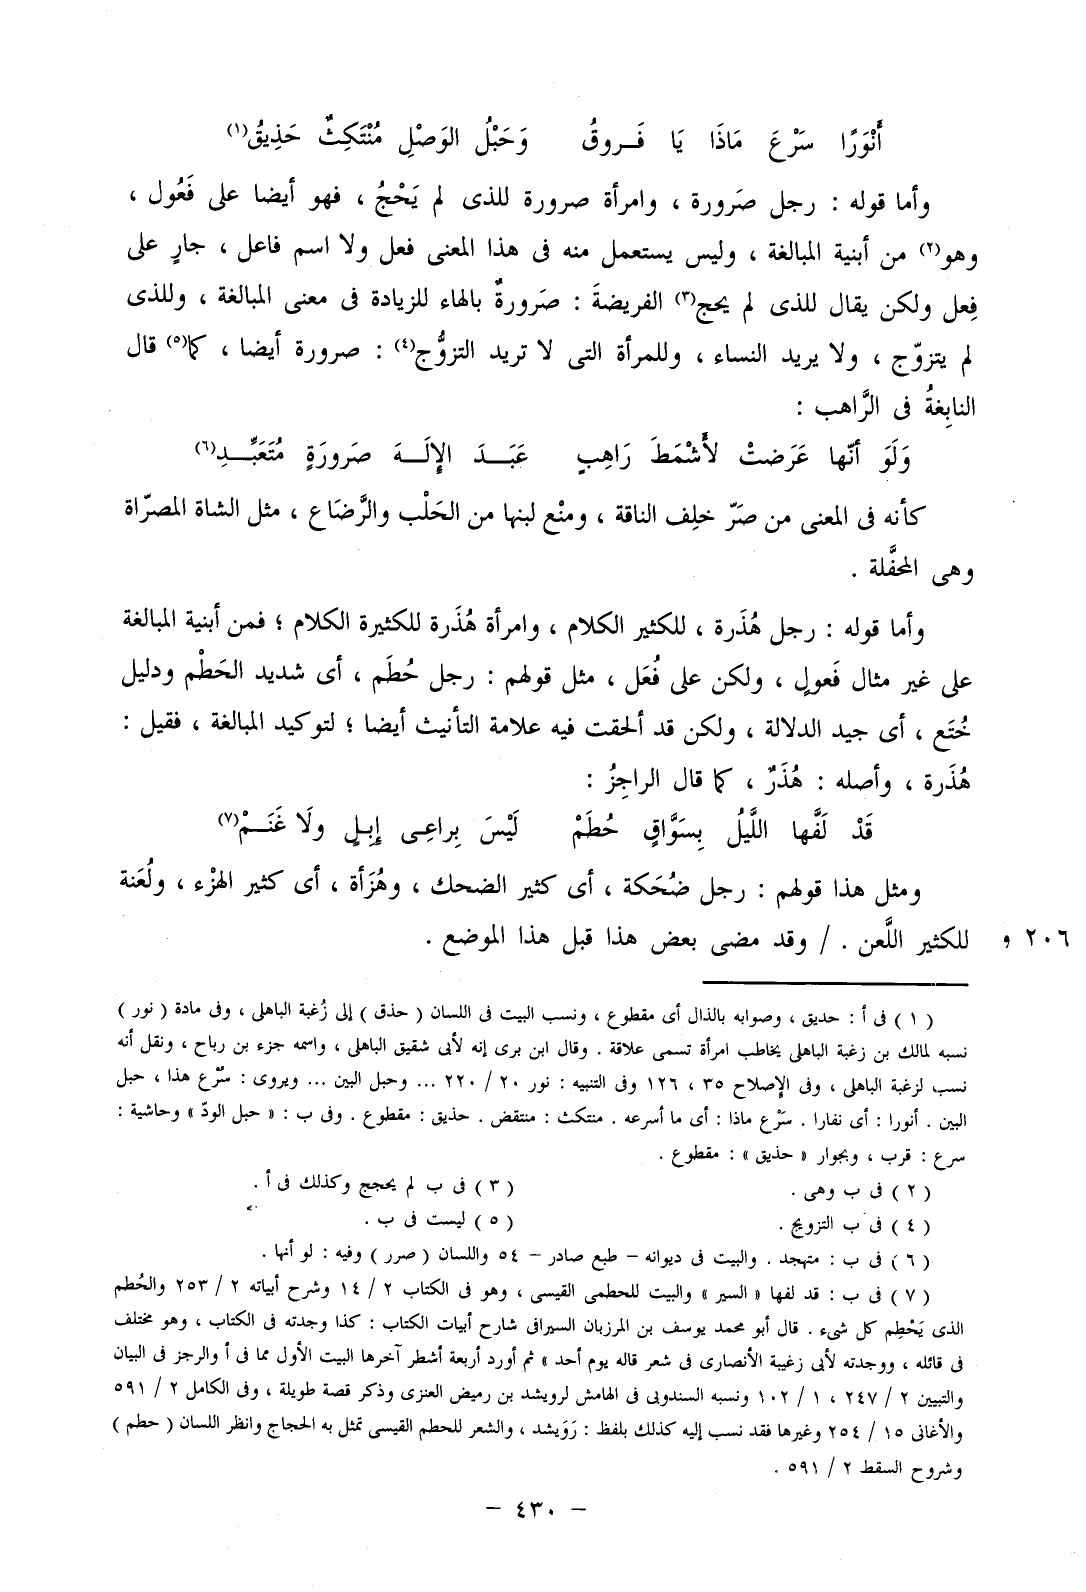 أَنْوَرًا سَرْعَ مَاذَا يَا فَـروقُ وَحَبْلُ الوَصْلِ مُنْتَكِثٌ حَذِيقُ(١)
وأما قوله : رجل صَرورة ، وامرأة صرورة للذى لم يَحْجُ ، فهو أيضا على فَعُول ،
وهو(٢) من أبنية المبالغة ، وليس يستعمل منه فى هذا المعنى فعل ولا اسم فاعل ، جارٍ على
فِعل ولكن يقال للذى لم يحج(٣) الفريضةَ : صَرورةٌ بالهاء للزيادة فى معنى المبالغة ، وللذى
لم يتزوّج ، ولا يريد النساء ، وللمرأة التى لا تريد التزوُّج(٤) : صرورة أيضا ، كما(٥) قال
النابِغةُ فى الرَّاهب :
وَلَوَ أنّها عَرَضتْ لأَشْمَطَ رَاهِبٍ عَبَـدَ الإِلَـهَ صَرورَةٍ مُتَعَبِّـدِ(٦)
كأنه فى المعنى من صَرّ خلِف الناقة ، ومنْع لبنها من الحَلْب والرَّضَاع ، مثل الشاة المصرّاة
وهى المحفَّلة .
وأما قوله : رجل هُذَرة ، للكثير الكلام ، وامرأة هُذَرة للكثيرة الكلام ؛ فمن أبنية المبالغة
على غير مثال فَعولٍ ، ولكن على فُعَل ، مثل قولهم : رجل حُطَم ، أى شديد الحَطْم ودليل
خُتَع ، أى جيد الدلالة ، ولكن قد ألحقت فيه علامة التأنيث أيضا ؛ لتوكيد المبالغة ، فقيل :
هُذَرة ، وأصله : هُذَرٌ ، كما قال الراجِزُ :
قَدْ لَفَّها اللَّيلُ بِسَوَّاقٍ حُطَمْ لَيْسَ بِراعِى إِبِلٍ ولَا غَنَـمْ(٧)
ومثل هذا قولهم : رجل ضُحَكة ، أى كثير الضحك ، وهُزَأة ، أى كثير الهزْء ، ولُعَنة
٢٠٦ و للكثير اللَّعن . / وقد مضى بعض هذا قبل هذا الموضع .
( ١ ) فى أ : حديق ، وصوابه بالذال أى مقطوع ، ونسب البيت فى اللسان ( حذق ) إلى زُغبة الباهلى ، وفى مادة ( نور )
نسبه لمالك بن زغبة الباهلى يخاطب امرأة تسمى علاقة . وقال ابن برى إنه لأبى شقيق الباهلى ، واسمه جزء بن رباح ، ونقل أنه
نسب لزغبة الباهلى ، وفى الإصلاح ٣٥ ، ١٢٦ وفى التنبيه : نور ٢٠ / ٢٢٠ ... وحبل البين ... ويروى : سّرْع هذا ، حبل
البين . أنورا : أى نفارا . سَرْع ماذا : أى ما أسرعه . منتكث : منتقض . حذيق : مقطوع . وفى ب : « حبل الودّ » وحاشية :
سرع : قرب ، وبجوار « حذيق » : مقطوع .
( ٢ ) فى ب وهى . ( ٣ ) فى ب لم يحجج وكذلك فى أ .
( ٤ ) فى ب التزويج . ( ٥ ) ليست فى ب .
( ٦ ) فى ب : متهجد . والبيت فى ديوانه – طبع صادر – ٥٤ واللسان ( صرر ) وفيه : لو أنها .
( ٧ ) فى ب : قد لفها « السير » والبيت للحطمى القيسى ، وهو فى الكتاب ٢ / ١٤ وشرح أبياته ٢ / ٢٥٣ والحُطم
الذى يَحْطِم كل شىء . قال أبو محمد يوسف بن المرزبان السيرافى شارح أبيات الكتاب : كذا وجدته فى الكتاب ، وهو مختلف
فى قائله ، ووجدته لأبى زغيبة الأنصارى فى شعر قاله يوم أحد » ثم أورد أربعة أشطر آخرها البيت الأول مما فى أ والرجز فى البيان
والتبيين ٢ / ٢٤٧ ، ١ / ١٠٢ ونسبه السندوبى فى الهامش لرويشد بن رميض العنزى وذكر قصة طويلة ، وفى الكامل ٢ / ٥٩١
والأغانى ١٥ / ٢٥٤ وغيرها فقد نسب إليه كذلك بلفظ : رَوَيشد ، والشعر للحطم القيسى تمثل به الحجاج وانظر اللسان ( حطم )
وشروح السقط ٢ / ٥٩١ .
– ٤٣٠ –